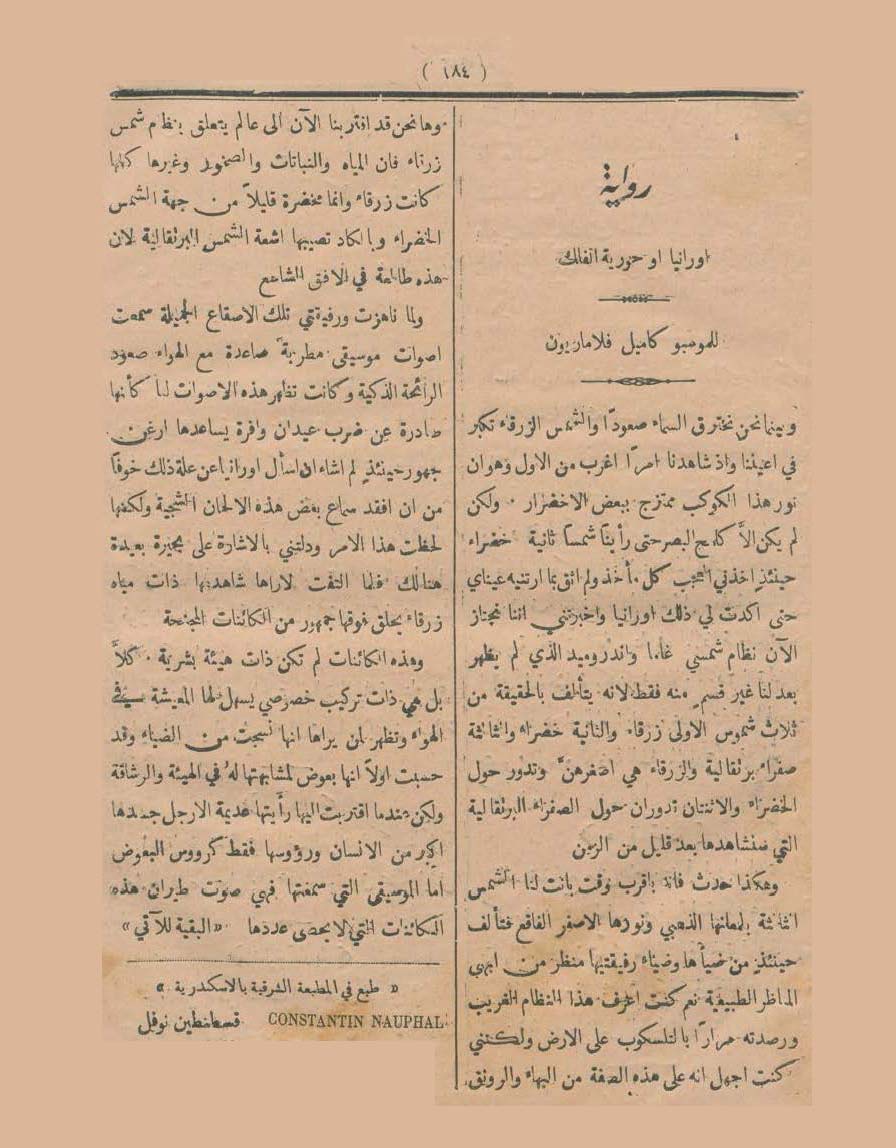 ( ١٨٤ )
رواية
اورانيا او حورية الفلك
للموسيو كاميل فلاماريون
وبينما نحن نخترق السماء صعودًا والشمس الزرقاء تكبر
في اعيننا واذ شاهدنا امرًا اغرب من الاول وهو ان
نور هذا الكوكب ممتزج ببعض الاخضرار . ولكن
لم يكن الاَّ كلمح البصر حتى رأينا شمسًا ثانية خضراء
حينئذٍ اخذني العجب كل مأخذ ولم اثق بما ارتنيه عيناي
حتى اكدت لي ذلك اورانيا واخبرتني اننا نجتاز
الآن نظام شمسي غاما واندروميد الذي لم يظهر
بعد لنا غير قسمٍ منه فقط لانه يتألف بالحقيقة من
ثلاث شموس الاولى زرقاء والثانية خضراء والثالثة
صفراء برتقالية والزرقاء هي اصغرهنَّ وتدور حول
الخضراء والاثنتان تدوران حول الصفراء البرتقالية
التي سنشاهدها بعد قليل من الزمن
وهكذا حدث فانه باقرب وقت بانت لنا الشمس
الثالثة بلمعانها الذهبي ونورها الاصفر الفاقع فتألف
حينئذٍ من ضيآها وضياء رفيقتيها منظر من ابهى
المناظر الطبيعية نعم كنت اعرف هذا النظام الغريب
ورصدته مرارًا بالتلسكوب على الارض ولكنني
كنت اجهل انه على هذه الصفة من البهاء والرونق
وها نحن قد اقتربنا الآن الى عالم يتعلق بنظام شمس
زرقاء فان المياه والنباتات والصخور وغيرها كلها
كانت زرقاء وانما مخضرة قليلاً من جهة الشمس
الخضراء وبالكاد تصيبها اشعة الشمس البرتقالية لان
هذه طالعة في الافق الشاسع
ولما ناهزت ورفيقتي تلك الاصقاع الجميلة سمعت
اصوات موسيقى مطربة صاعدة مع الهواء صعود
الرائحة الذكية وكانت تظهر هذه الاصوات لنا كأنها
صادرة عن ضرب عيدان وافرة يساعدها ارغن
جهور حينئذٍ لم اشاء ان اسأل اورانيا عن علة ذلك خوفًا
من ان افقد سماع بعض هذه الالحان الشجية ولكنها
لحظت هذا الامر ودلتني بالاشارة على بحيرة بعيدة
هنالك فلما التفت لاراها شاهدتها ذات مياه
زرقاء يحلق فوقها جمهور من الكائنات المجنحة
وهذه الكائنات لم تكن ذات هيئة بشرية . كلاَّ
بل هي ذات تركيب خصوصي يسهل لها المعيشة في
الهواء وتظهر لمن يراها انها نسجت من الضياء وقد
حسبت اولاً انها بعوض لمشابهتها له في الهيئة والرشاقة
ولكن عندما اقتربت اليها رأيتها عديمة الارجل جسدها
اكبر من الانسان ورؤوسها فقط كرووس البعوض
اما الموسيقى التي سمعتها فهي صوت طيران هذه
الكائنات التي لا يحصى عددها «البقية للآتي»
« طبع في المطبعة الشرقية بالاسكندرية »
CONSTANTIN NAUPHAL قسطنطين نوفل